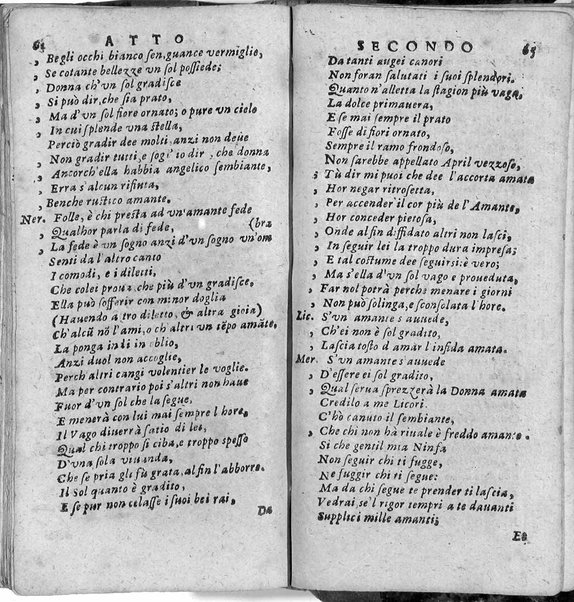 64 ATTO
, Begli occhi bianco sen, guance vermiglie,
, Se cotante bellezze vn sol possiede;
, Donna ch'vn sol gradisce
, Si può dir, che sia prato,
, Ma d'vn sol fiore ornato; o pure vn cielo
, In cui splende vna stella,
Perciò gradir dee molti, anzi non deue
, Non gradir tutti, e sog' io dir, che donna
, Ancorch'ella habbia angelico sembiante,
, Erra s'alcun rifiuta,
, Benche rustico amante.
Ner. Folle, è chi presta ad vn'amante fede
, Qualhor parla di fede, (bra
, La fede è vn sogno anzi d'vn sogno vn'om
Senti da l'altro canto
I comodi, e i diletti,
Che colei proua, che più d'vn gradisce.
Ella può sofferir con minor doglia
(Hauendo altro diletto, & altra gioia)
Ch'alcū nō l'ami, o ch'altri un tēpo amāte,
La ponga in li in oblio,
Anzi duol non accoglie,
Perch'altri cangi volentier le voglie.
Ma per contrario poi s'altri non haue
Fuor d'vn sol che la segue,
E menerà con lui mai sempre l'hore,
Il Vago diuerrà satio di lei,
Qual chi troppo si ciba, e troppo spesso
D'vna sola viuanda,
Che se pria gli fù grata, al fin l'abborre.
Il Sol quanto è gradito,
E se pur non celasse i suoi bei rai,
Da
SECONDO 65
Da tanti augei canori
Non foran salutati i suoi splendori.
Quanto n'alletta la stagion più vaga,
La dolce primauera,
E se mai sempre il prato
Fosse di fiori ornato,
Sempre il ramo frondoso,
Non sarebbe appellato April vezzoso,
, Tù dir mi puoi che dee l'accorta amata
, Hor negar ritrosetta,
, Per accender il cor più de l'Amante,
, Hor conceder pietosa,
, Onde al fin diffidato altri non lasci,
, In seguir lei la troppo dura impresa;
, E tal costume dee seguirsi: è vero;
, Ma s'ella d'vn sol vago e proueduta,
, Far nol potrà perche menare i giorni
, Non può solinga, e sconsolata l'hore.
Lic. S'vn amante s'auuede,
, Ch'ei non è sol gradito,
, Lascia tosto d'amar l'infida amata.
Mer. S'vn amante s'auuede
, D'essere ei sol gradito,
, Qual serua sprezzerà la Donna amata
Credilo a me Licori.
C'hò canuto il sembiante,
, Che chi non hà riuale è freddo amante.
Si che gentil mia Ninfa
Non seguir chi ti fugge,
Ne fuggir chi ti segue:
Ma da chi segue te prender ti lascia,
Vedrai, se'l rigor tempri a te dauanti
Supplici mille amanti;
Et